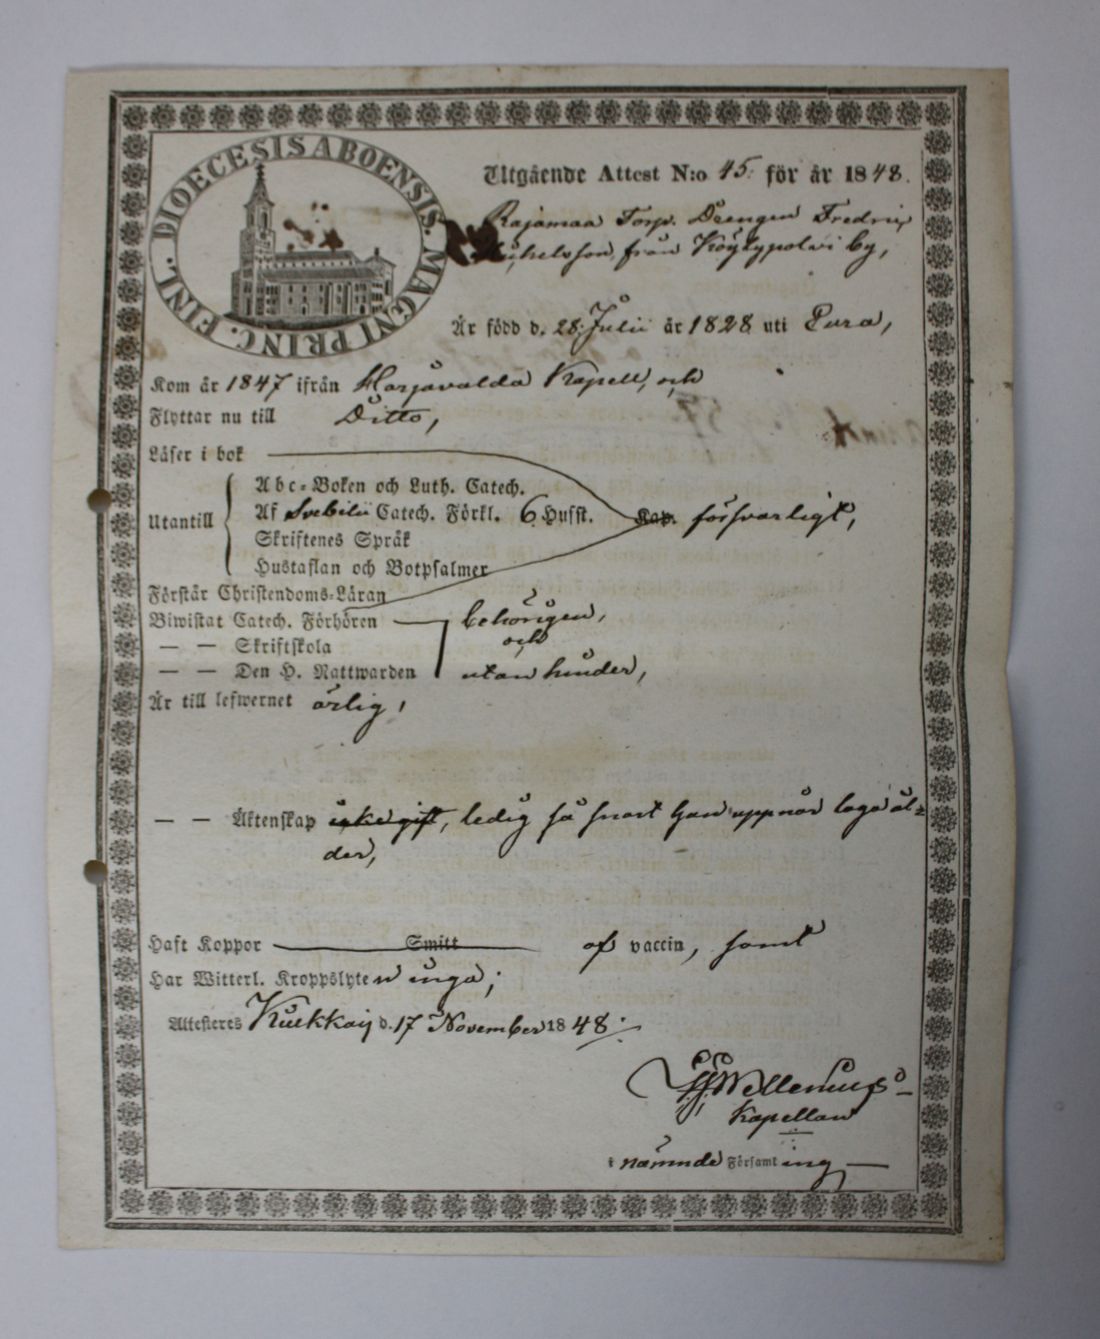 DIOECESIS ABOENSIS. MAGNI PRINC. FINL.
Utgående Attest N:o 45. för år 1848.
Rajamaa Torp. Drengen Fredric
Michelsson, från Köylypolvi by,
Är född d. 28. Julii år 1828 uti Eura,
Kom år 1847 ifrån Harjavalda Kapell, och
Flyttar nu till Ditto,
Läser i bok
Utantill
Abc-Boken och Luth. Catech.
Af Svebilii Catech. Förkl. 6 Hufst. Kap. försvarligt,
Skriftenes Språk
Hustaflan och Botpsalmer
Förstår Christendoms-Läran
Biwistat Catech. Förhören behörigen,
— — Skriftskola och
— — Den H. Nattwarden utan hinder,
Är till lefwernet ärlig,
— — Äktenskap icke gift, ledig så snart han uppnår laga ål-
der,
Haft Koppor Smitt af vaccin, samt
Har Witterl. Kroppslyten inga;
Attesteres Kiukkais d. 17 November 1848.
Wellenius
Kapellan
i nämnde Församling